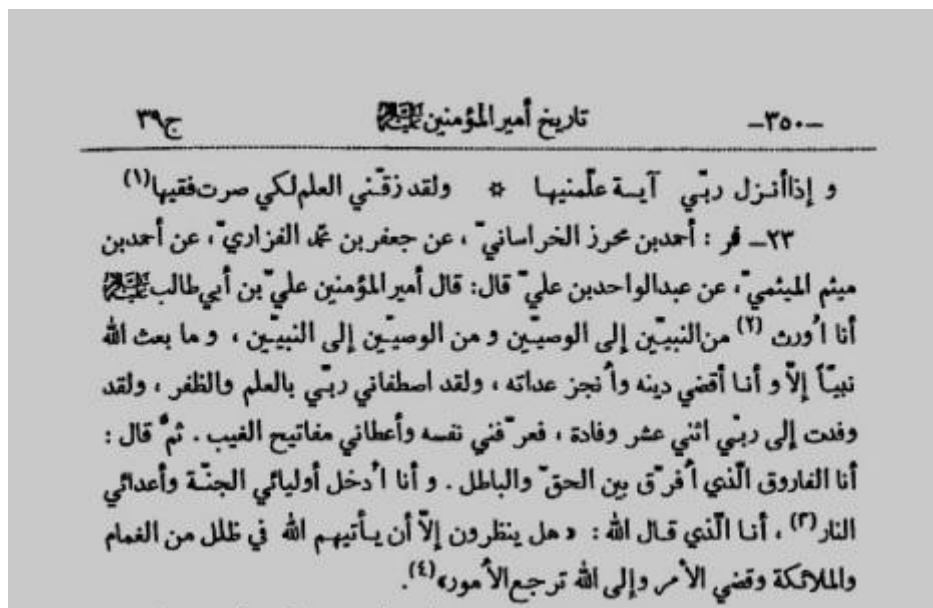 -٣٥٠- تاريخ أمير المؤمنين عليه السلام ج٣٩
و إذا أنـزل ربّي آيـة علّمنيهـا ✿ ولقد زقّـني العلم لكي صرت فقيها (١)
٢٣ــ فر : أحمد بن محرز الخراسانيّ ، عن جعفر بن محمّد الفزاريّ ، عن أحمد بن
ميثم الميثميّ ، عن عبدالواحد بن عليّ قال: قال أمير المؤمنين عليّ بن أبي طالب عليه السلام
أنا اُورث (٢) من النبيّين إلى الوصيّين و من الوصيّين إلى النبيّين ، و ما بعث الله
نبيّاً إلّا و أنـا أقضي دينه واُنجز عداته ، ولقد اصطفاني ربّي بالعلم والظفر ، ولقد
وفدت إلى ربّي اثني عشر وفادة ، فعرّفني نفسه وأعطاني مفاتيح الغيب . ثمّ قال :
أنا الفاروق الّذي اُفرّق بين الحقّ والباطل . و أنا اُدخل أوليائي الجنّـة وأعدائي
النار (٣) ، أنـا الّذي قـال الله : « هل ينظرون إلّا أن يـأتيهـم الله في ظلل من الغمام
والملائكة وقضي الأمر وإلى الله ترجع الاُمور» (٤).